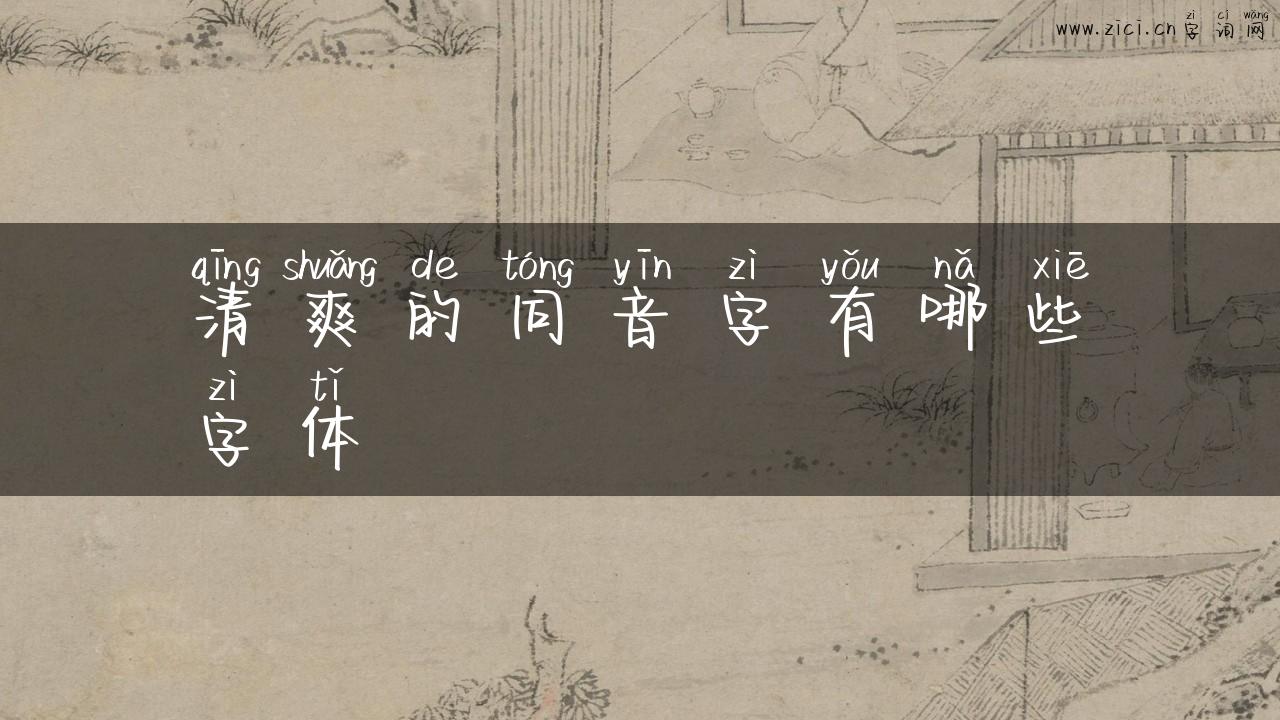 zì cí wǎng
www.zici.cn 字词网
qīng shuǎng de tóng yīn zì yǒu nǎ xiē
清爽的同音字有哪些
zì tǐ
字体